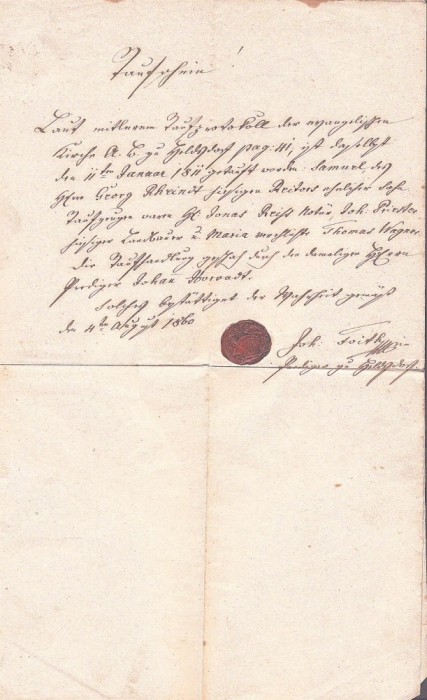 Taufschein!
Laut mittlerem Taufprotokoll der evangelischen
Kirche A. B. zu Heldsdorf pag: 41, ist daselbst
den 11ten Januar 1811 getauft worden: Samuel, des
Georg Rheindt hiesigen ehelicher Sohn
Taufzeugen waren H. Jonas Notär, Joh.
hiesiger u. Maria verehlichte Thomas Wagner
Die Taufhandlung geschah durch den damaligen Herrn
Prediger Johan
Solches bestättiget der Wahrheit gemäß
den 4ten August 1860
Joh:
Prediger zu Heldsdorf